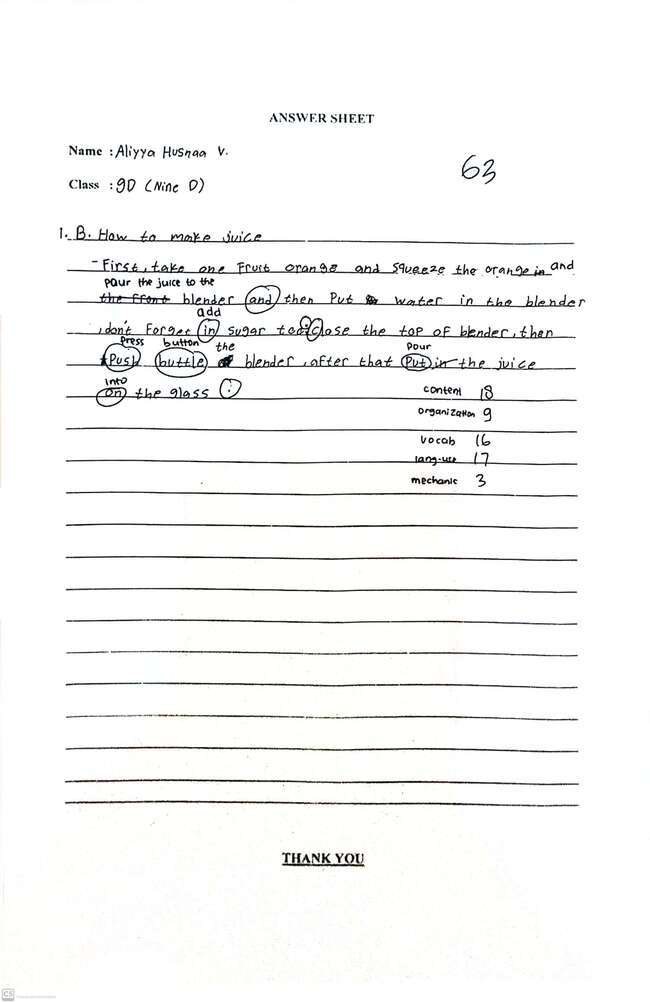 ANSWER SHEET
Name : Aliyya Husnaa V.
63
Class : 9D (Nine D)
1. B. How to make juice
- First, take one fruit orange and squeeze the orange in and
pour the juice to the
the front blender and then put water in the blender
add
, don't forget in sugar too. Close the top of blender, then
press button the pour
Push buttle blender, after that Put in the juice
into
on the glass .
content 18
organization 9
vocab 16
lang-use 17
mechanic 3
THANK YOU
CS